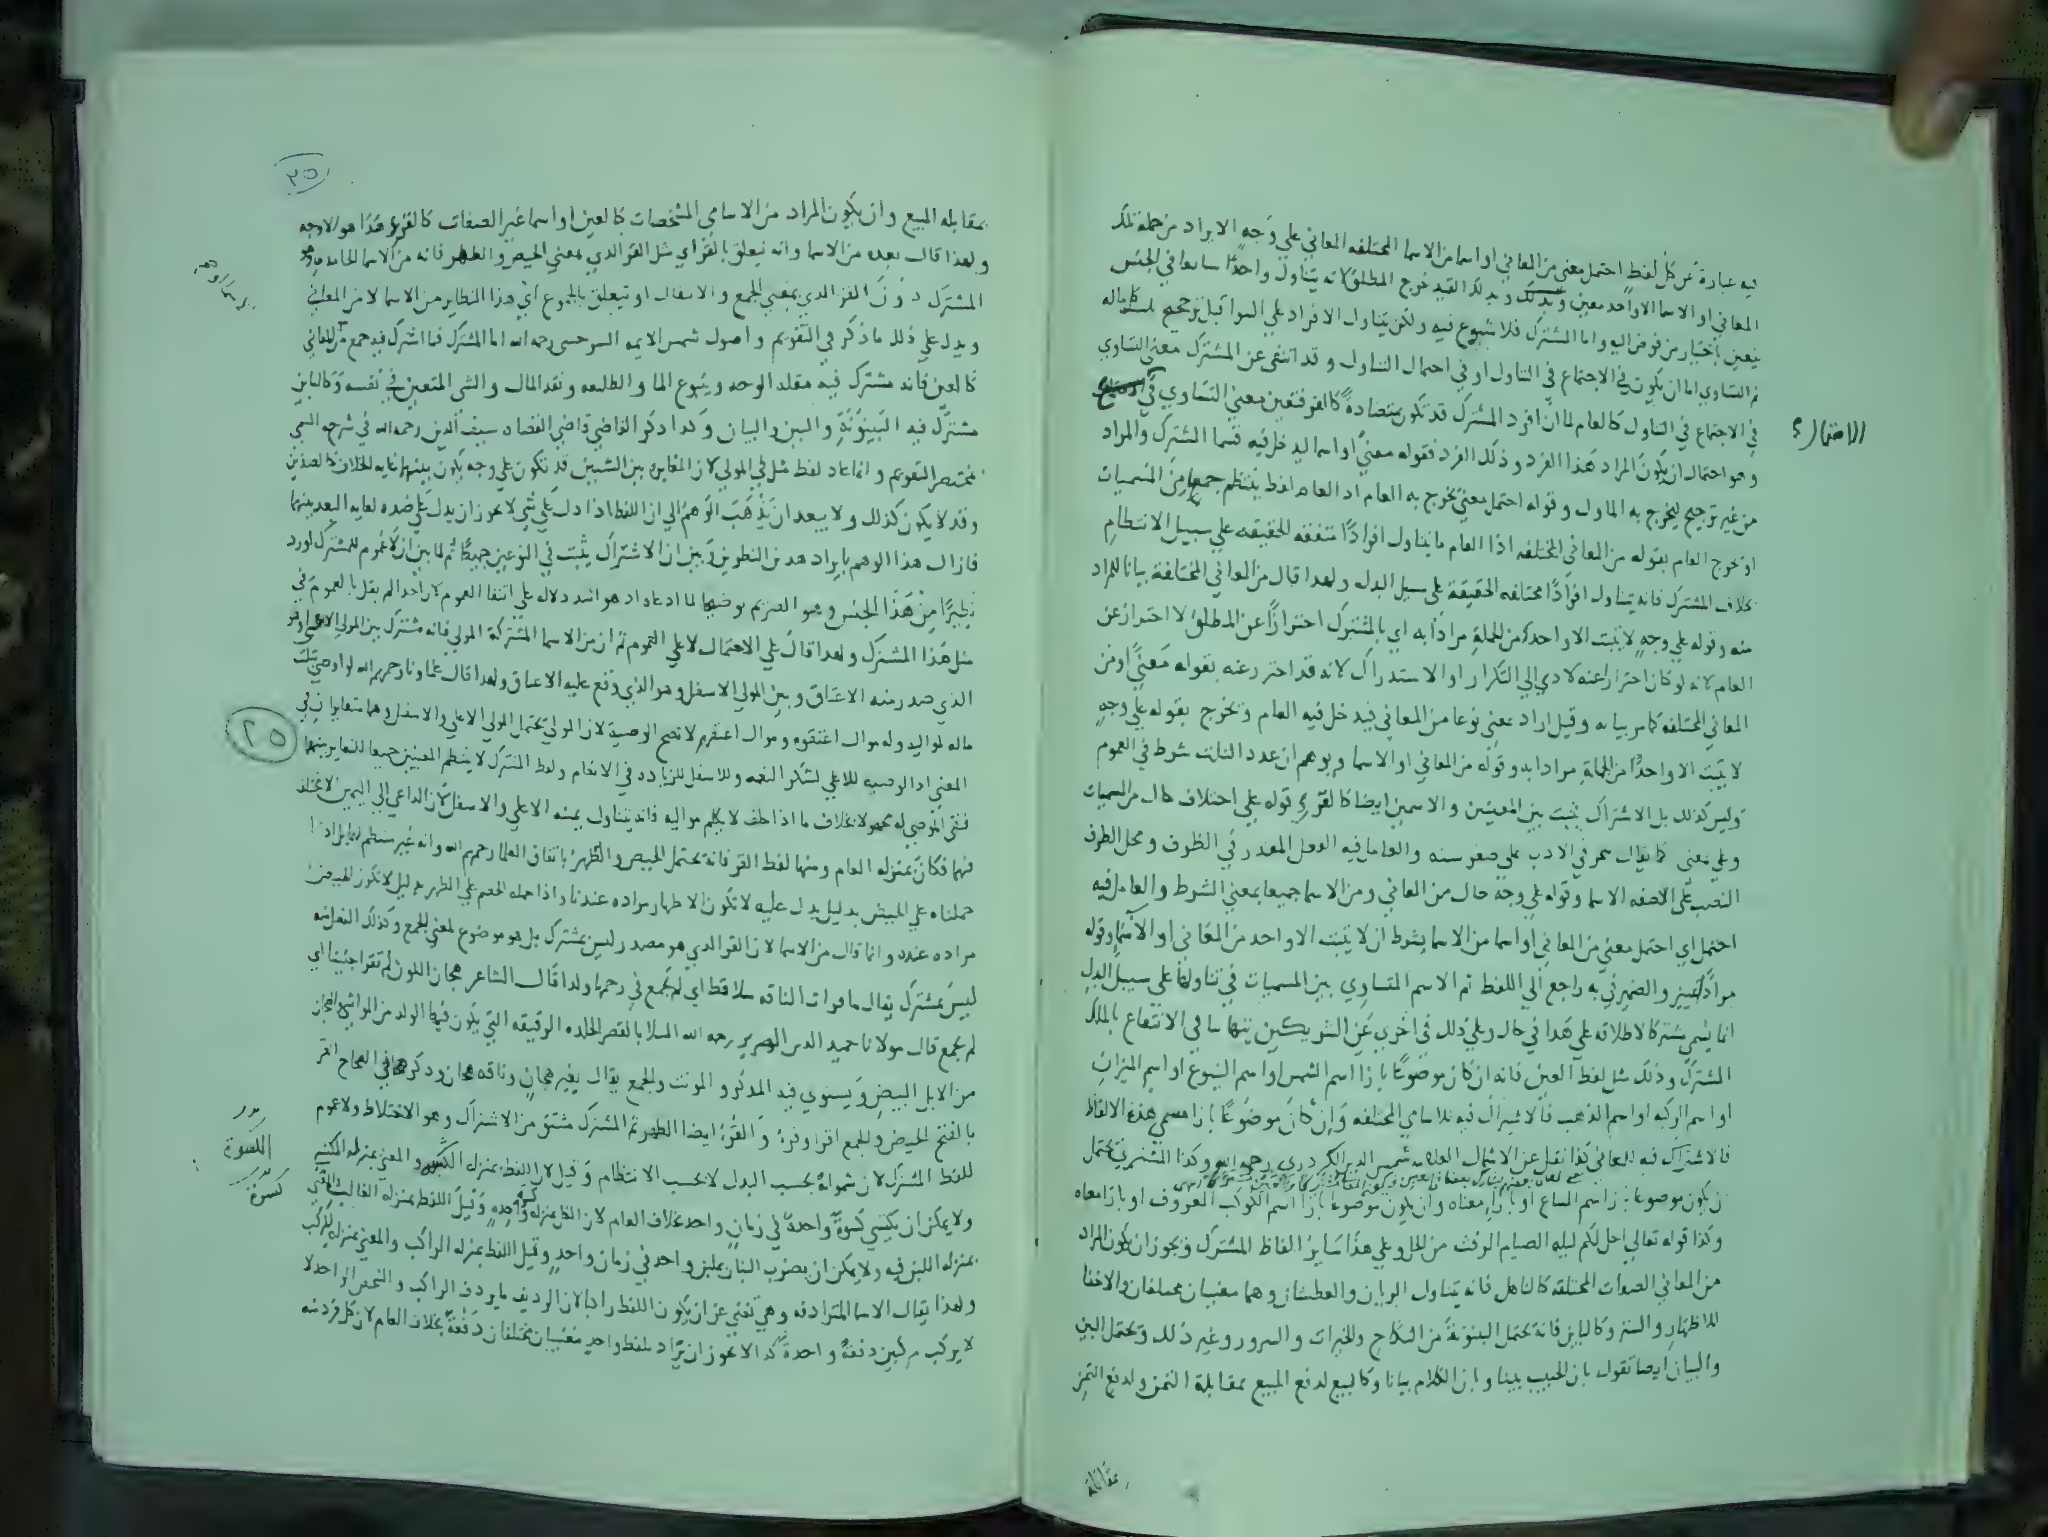 فيه عبارة عن كل لفظ احتمل معنى من المعاني او اسما من الاسما المختلفه المعاني علي وجه الايراد من جملة تلك
المعاني او الاسما الا واحد معين وبذلك القيد خرج المطلق لانه يتناول واحدًا شايعا في الجنس
يتعين باختيار من فوض اليه واما المشترك فلا شيوع فيه ولكن يتناول الافراد علي السوا قبل ترجيح
ثم التساوي اما ان يكون في الاجتماع في التناول او في احتمال التناول وقد انتفى عن المشترك معنى التساوي
في الاجتماع في التناول كالعام لما ان افراد المشترك قد تكون متضادةً كالقرء فتعين معنى التساوي في
الاحتمال
وهو احتمال ان يكون المراد هذا الفرد وذلك الفرد فقوله معنىً او اسما ليدخل فيه قسما المشترك والمراد
من غير ترجيح ليخرج به الماول وقوله احتمل معنى يخرج به العام اذ العام لفظ ينتظم جمعا من المسميات
او يخرج العام بقوله من المعاني المختلفه اذا العام ما يتناول افرادًا متفقه الحقيقه علي سبيل الانتظام
بخلاف المشترك فانه يتناول افرادًا مختلفه الحقيقة على سبيل البدل ولهذا قال من المعاني المختلفة بيانا للمراد
منه وقوله علي وجهٍ لا يثبت الا واحد من الجملةِ مرادًا به اي بالمشترك احترازًا عن المطلق لا احتراز عن
العام لانه لو كان احترازا عنه لادي الي التكرار او الاستدراك لانه قد احترز عنه بقوله معنىً او من
المعاني المختلفه كما مر بيانه وقيل اراد بمعني نوعا من المعاني فيدخل فيه العام ويخرج بقوله علي وجهٍ
لا يثبت الا واحدًا من الجملةِ مرادا به وقوله من المعاني او الاسما يوهم ان عدد الثلث شرط في العموم
وليس كذلك بل الاشتراك يثبت بين المعنيين والاسمين ايضا كالقرء قوله علي اختلاف حال من المسميات
وعلي معنى كما يقال في الادب علي صغر سنه والعامل فيه الفعل المقدر في الظرف ومحل الظرف
النصب على الصفه الاسما وقوله علي وجه حال من المعاني ومن الاسما جميعا بمعني الشرط والعامل فيه
احتمل اي احتمل معنى من المعاني او اسما من الاسما بشرط ان لا يثبت الا واحد من المعاني او الاسما وقوله
مرادًا تمييز والضمير في به راجع الي اللفظ ثم الاسم المتساوي بين المسميات في تناولها على سبيل البدل
انما يسمى مشتركا لاطلاقه علي هذا في حال وعلي ذلك في اخري عن الشريكين يتهايا في الانتفاع بالملك
المشترك وذلك مثل لفظ العين فانه ان كان موضوعًا بازا اسم الشمس او اسم الينبوع او اسم الميزان
او اسم الركبه او اسم الذهب فالاشتراك فيه للاسامي المختلفه وان كان موضوعًا بازا مسمى هذه الالفاظ
فالاشتراك فيه للمعاني كذا نقل عن العلامه شمس الدين الكردري رحمه الله وكذا المشتري يحتمل
ان يكون موضوعا بازا اسم او بازا معناه وان يكون موضوعا بازا اسم الكوكب المعروف او بازا معناه
وكذا قوله تعالى احل لكم ليلة الصيام الرفث من الحل وعلي هذا ساير الفاظ المشترك ويجوز ان يكون المراد
من المعاني الصفات المختلفه كالناهل فانه يتناول الريان والعطشان وهما معنيان مختلفان والاخفا
للاظهار والستر وكالباين فانه يحتمل البينونة من النكاح والخيرات والسرور وغير ذلك ويحتمل البين
والبيان ايضا تقول بان الحبيب بينا وبان الكلام بيانا وكالبيع لدفع المبيع بمقابلة الثمن ولدفع الثمن
بمقابلة
٢٥
بمقابله المبيع وان يكون المراد من الاسامي المشخصات كالعين او اسما غير الصفات كالقرء هذا هو الاوجه
ولهذا قال بعده من الاسما وانه يتعلق بالقرء اي مثل القرء الذي بمعني الحيض والطهر فانه من الاسما الجامده
المشترك دون القرء الذي بمعني الجمع والانتقال او يتعلق بالجموع اي هذا النظاير من الاسما لا من المعاني
ويدل علي ذلك ما ذكر في التقويم واصول شمس الايمه السرخسي رحمه الله اما المشترك فما اشترك فيه جمع من المعاني
كالعين فانه مشترك فيه مقلة الوجه وينبوع الما والطليعه ونقد المال والشي المتعين في نفسه وكالباين
مشترك فيه البينونة والبين والبيان وكذا ذكر القاضي قاضي القضاه سيف الدين رحمه الله في شرحه
لمختصر التقويم وانما عاد لفظ مثل في المولي لان المغايره بين الشيين قد تكون علي وجه يكون بينهما غايه الخلاف كالضدين
وقد لا يكون كذلك ولا يبعد ان يذهب الوهم الي ان اللفظ اذا دل علي شي لا يجوز ان يدل علي ضده لغايه البعد بينهما
فازال هذا الوهم بايراد هذين النظيرين وبين ان الاشتراك يثبت في النوعين جميعًا ثم لما بين ان لا عموم للمشترك اورد
نظيرًا من هذا الجنس وهو الصريم توضيحا لما ادعاه اذ هو اشد دلاله علي انتفا العموم لان احدا لم يقل بالعموم في
مثل هذا المشترك ولهذا قال علي الاحتمال لا علي العموم ثم ان من الاسما المشتركة المولي فانه مشترك بين المولي الاعلى وهو
الذي صدر منه الاعتاق وبين المولي الاسفل وهو الذي وقع عليه الاعتاق ولهذا قال علماونا رحمهم الله لو اوصي بثلث
٢٥
ماله لمواليه وله موال اعتقوه وموال اعتقهم لا تصح الوصية لان المولي يحتمل المولي الاعلي والاسفل وهما متغايران في
المعني اذ الوصيه للاعلي لشكر النعمه وللاسفل للزيادة في الانعام ولفظ المشترك لا ينتظم المعنيين جميعا للتغاير بينهما
فبقي الموصي له مجهولا بخلاف ما اذا حلف لا يكلم مواليه فانه يتناول يمينه الاعلي والاسفل لان الداعي الي اليمين لا يختلف
فيهما فكان بمنزله العام ومنها لفظ القرء فانه يحتمل الحيض والطهر باتفاق العلما رحمهم الله وانه غير منتظم لهما
حملناه علي الحيض بدليل يدل عليه لا تكون الاطهار مراده عندنا واذا حمله الخصم علي الطهر بدليل لا تكون الحيض
مراده عنده وانما قال من الاسما لان القرء الذي هو مصدر ليس بمشترك بل هو موضوع لمعني الجمع وكذلك الفعل منه
ليس بمشترك يقال ما قرات الناقه سلا قط اي لم يجمع في رحمها ولدا قال الشاعر هجان اللون لم تقرا جنينا اي
لم يجمع قال مولانا حميد الدين الضرير رحمه الله السلا بالقصر الجلده الرقيقه التي يكون فيها الولد من المواشي والهجان
من الابل البيض ويستوي فيه المذكر والمونث والجمع يقال بعير هجان وناقه هجان وذكر في الصحاح القرء
بالفتح الحيض والجمع اقرا وقرء والقرء ايضا الطهر ثم المشترك مشتق من الاشتراك وهو الاختلاط ولا عموم
للفظ المشترك لان شموله بحسب البدل لا بحسب الانتظام وقيل لان اللفظ بمنزله الكسوة والمعني بمنزله المكتسي
الكسوة
كسوة
ولا يمكن ان يكتسي كسوة واحدة في زمان واحد بخلاف العام لان الكل بمنزله واحدٍ وقيل اللفظ بمنزله القالب والمعني
بمنزله اللبن فيه ولا يمكن ان يضرب اللبنان بملبن واحد في زمان واحدٍ وقيل اللفظ بمنزله الراكب والمعني بمنزله المركب
ولهذا يقال الاسما المترادفه وهي تغني عن ان يكون اللفظ راكبا لان الرديف ما يردف الراكب والشخص الواحد لا
لا يركب مركبين دفعةً واحدةً كذا لا يجوز ان يراد بلفظ واحدٍ معنيان مختلفان دفعةً بخلاف العام لان كل فرد منه